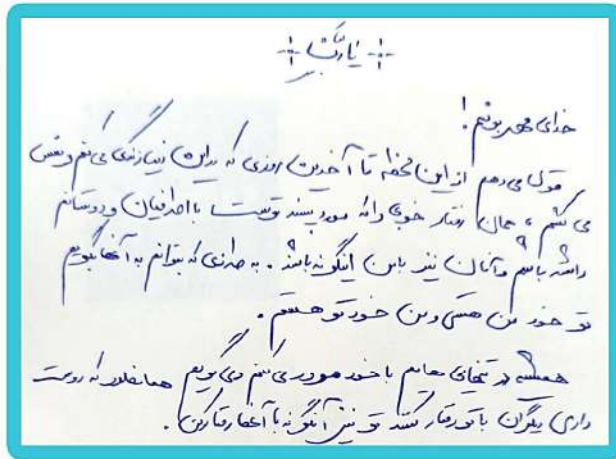 خدای مهربونم!
قول می دهم از این لحظه تا آخرین روزی که در این دنیا زندگی می کنم و نفس
می کشم، همان رفتار خوبی را که مورد پسند توست با اطرافیان و دوستانم
داشته باشم و آنان نیز با من اینگونه باشند. به طرزی که بتوانم به آنها بگویم
تو خود من هستی و من خود تو هستم.
همیشه در تنهایی هایم با خود مرور می کنم و می گویم همانطور که دوست
داری دیگران با تو رفتار کنند تو نیز آنگونه با آنها رفتار کن.